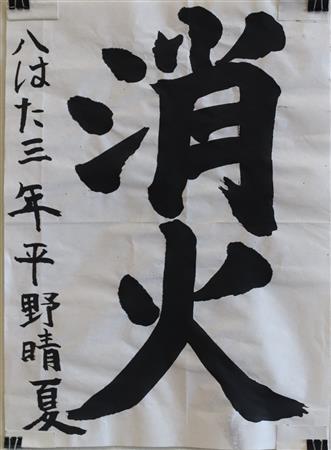 消火
八はた三年平野晴夏